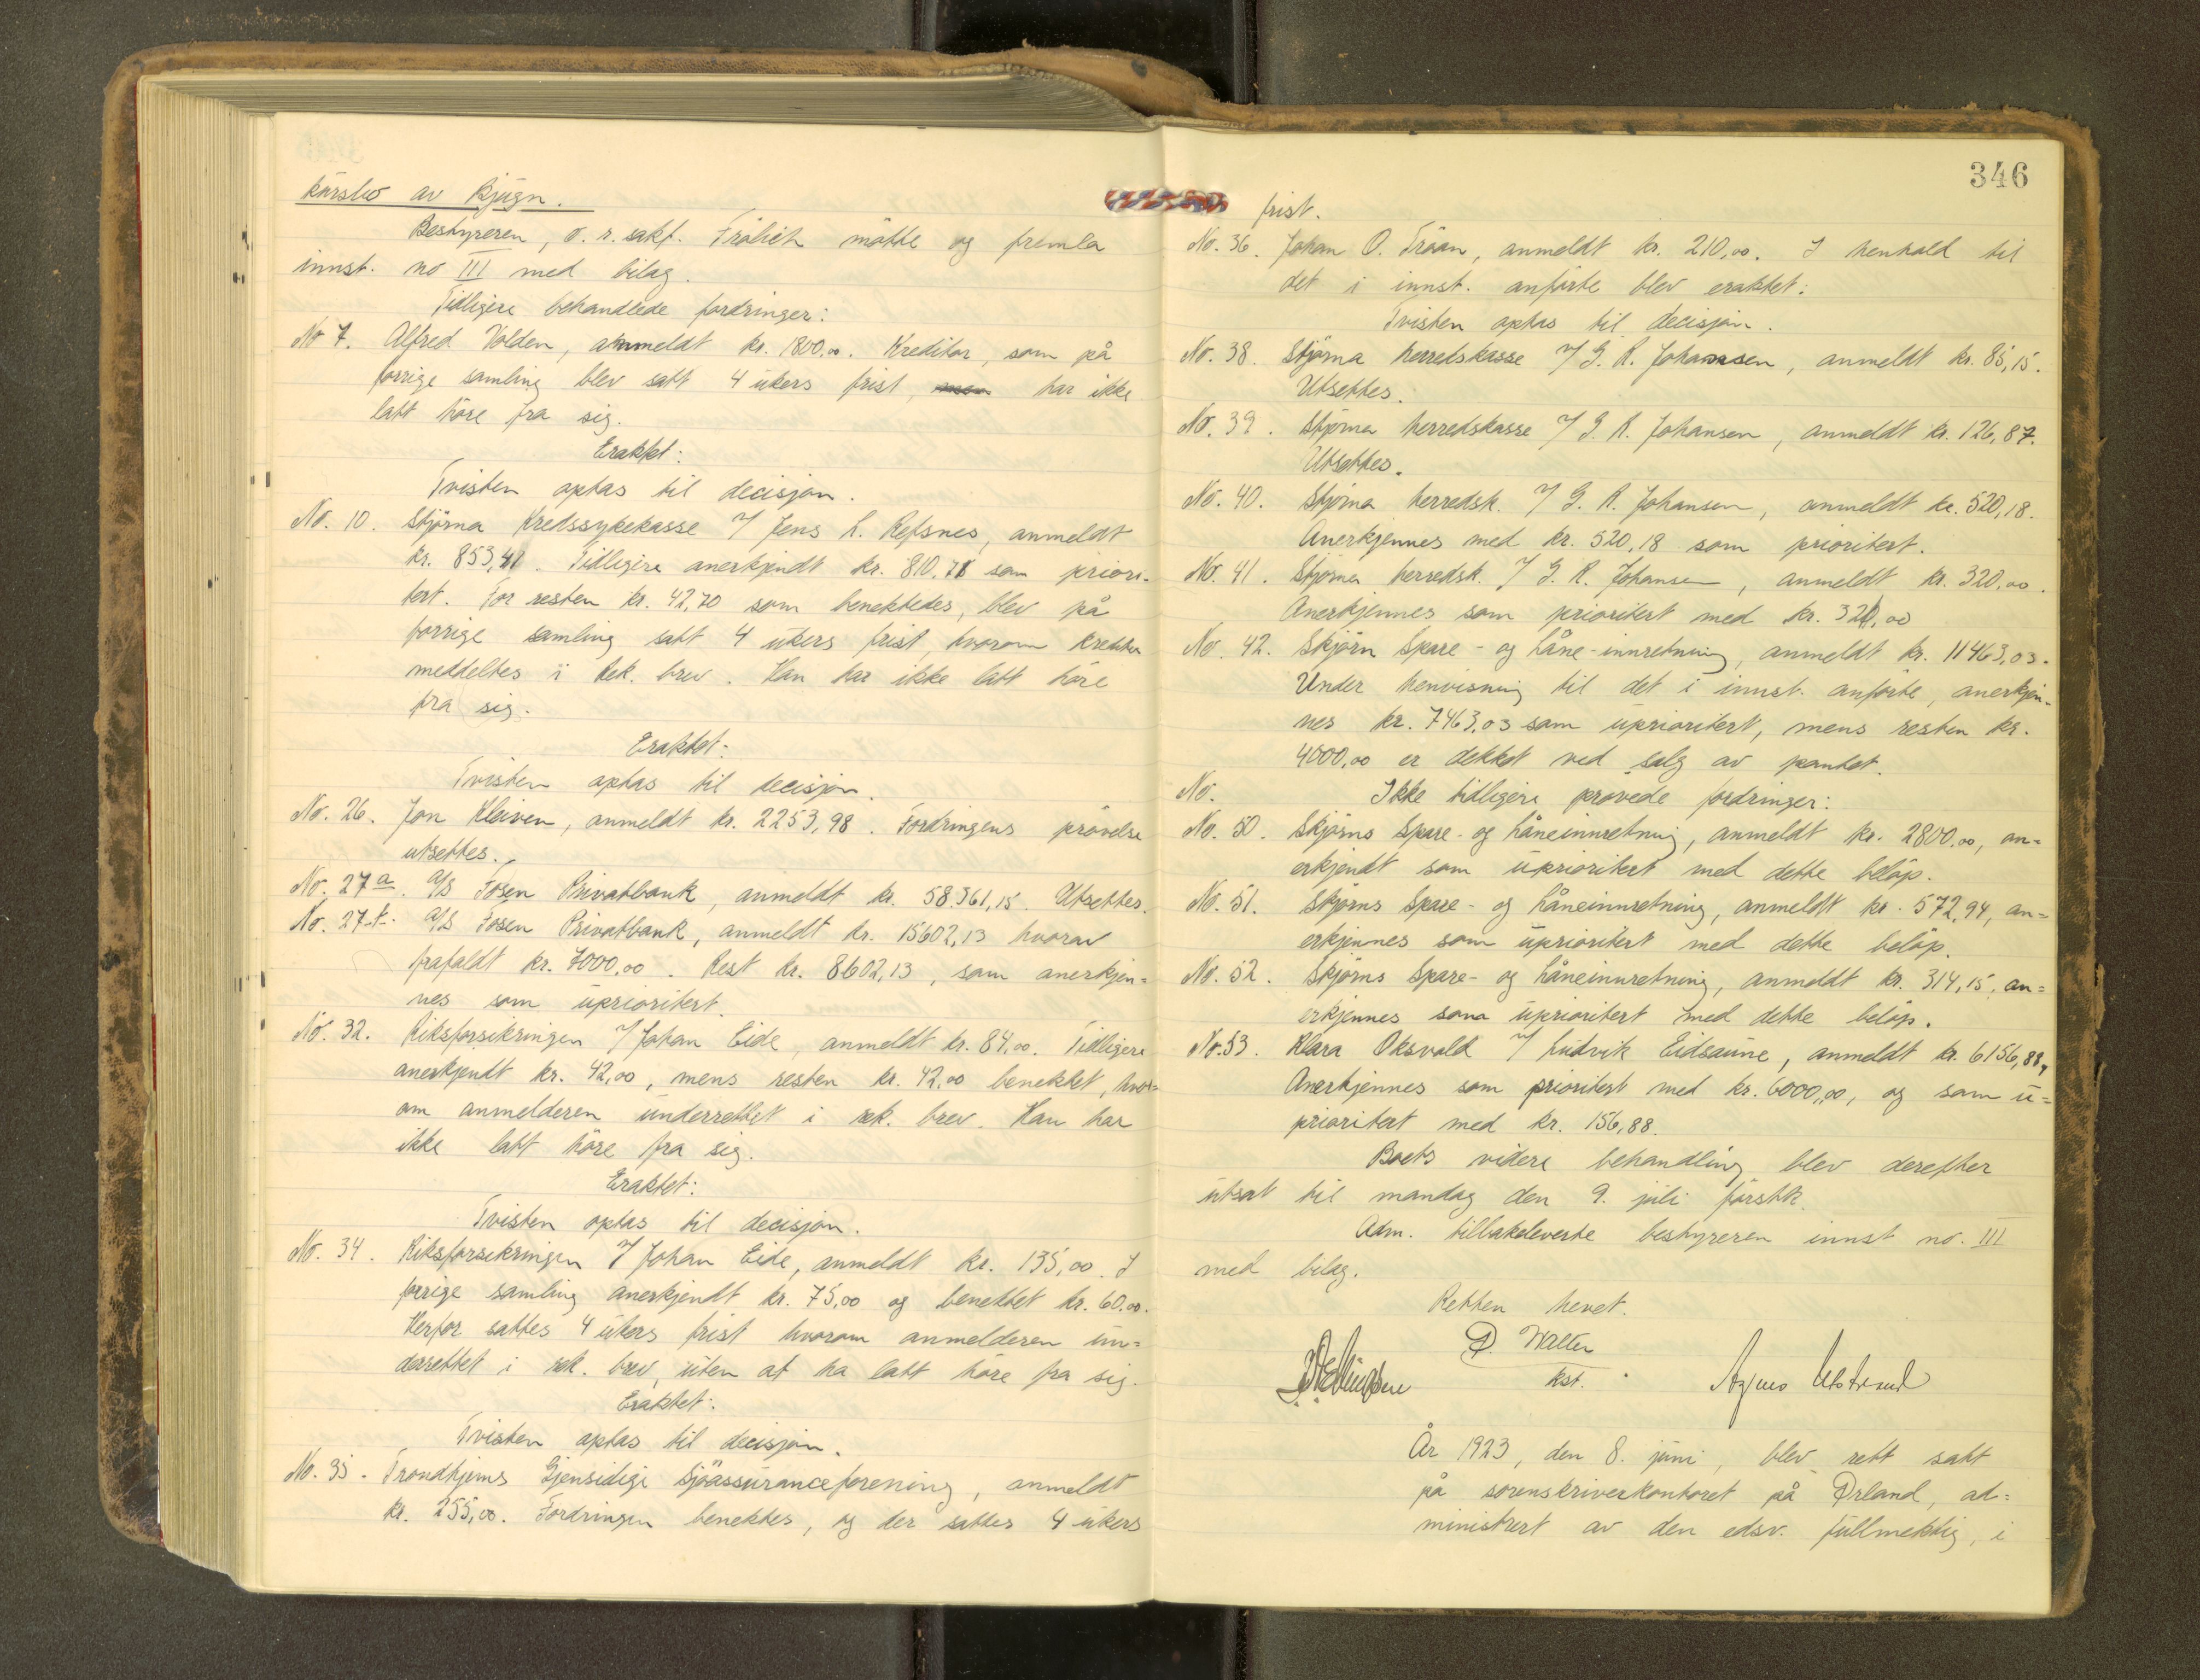 kårslev av Bjugn.
Bestyreren, o. r. sakf. Frölich mötte og fremla
innst. no III med bilag.
Tidligere behandlede fordringer:
No 7. Alfred Volden, anmeldt kr. 1800,00. Kreditor, som på
forrige samling blev satt 4 ukers frist, men har ikke
latt höre fra sig.
Eraktet:
Tvisten optas til decisjon.
No. 10. Stjörna Kredssykekasse v/ Jens L. Refsnes, anmeldt
kr. 853,41. Tidligere anerkjendt kr. 810,71 som priori-
tert. For resten kr. 42,70 som benektedes, blev på
forrige samling satt 4 ukers frist, hvorom kreditor
meddeltes i rek. brev. Han har ikke latt höre
fra sig.
Eraktet:
Tvisten optas til decisjon.
No. 26. Jon Kleiven, anmeldt kr. 2253,98. Fordringens prövelse
utsettes.
No. 27a. A/S Fosen Privatbank, anmeldt kr. 58.361,15. Utsettes.
No. 27b. A/S Fosen Privatbank, anmeldt kr. 15602,13 hvorav
frafaldt kr. 7000,00. Rest kr. 8602,13, som anerkjen=
nes som uprioritert.
No. 32. Riksforsikringen v/ Johan Eide, anmeldt kr. 84,00. Tidligere
anerkjendt kr. 42,00, mens resten kr. 42,00 benektet, hvor=
om anmelderen underrettet i rek. brev. Han har
ikke latt höre fra sig.
Eraktet:
Tvisten optas til decisjon.
No. 34. Riksforsikringen v/ Johan Eide, anmeldt kr. 135,00. I
forrige samling anerkjendt kr. 75,00 og benektet kr. 60,00.
Herfor sattes 4 ukers frist hvorom anmelderen un=
derrettet i rek. brev, uten at ha latt höre fra sig.
Eraktet:
Tvisten optas til decisjon.
No. 35. Trondhjems Gjensidige Sjöassuranceforening, anmeldt
kr. 255,00. Fordringen benektes, og der sattes 4 ukers
346
frist.
No. 36. Johan O. Tröan, anmeldt kr. 210,00. I henhold til
det i innst. anförte blev eraktet:
Tvisten optas til decisjon.
No. 38. Stjörna herredskasse v/ G. R. Johansen, anmeldt kr. 85,15.
Utsettes.
No. 39. Stjörna herredskasse v/ G. R. Johansen, anmeldt kr. 126,87.
Utsettes.
No. 40. Stjörna herredsk. v/ G. R. Johansen, anmeldt kr. 520,18.
Anerkjennes med kr. 520,18 som prioritert.
No. 41. Stjörna herredsk. v/ G. R. Johansen, anmeldt kr. 320,00.
Anerkjennes som prioritert med kr. 320,00
No. 42. Skjörn Spare- og Låne-innretning, anmeldt kr. 11463,03.
Under henvisning til det i innst. anförte, anerkjen-
nes kr. 7463,03 som uprioritert, mens resten kr.
4000,00 er dekket ved salg av pantet.
No. Ikke tidligere prövede fordringer:
No. 50. Skjörns Spare- og Låneinnretning, anmeldt kr. 2800,00, an=
erkjendt som uprioritert med dette belöp.
No. 51. Skjörns Spare- og Låneinnretning, anmeldt kr. 572,94, an=
erkjennes som uprioritert med dette belöp.
No. 52. Skjörns Spare- og Låneinnretning, anmeldt kr. 314,15, an=
erkjennes som uprioritert med dette belöp.
No. 53. Klara Oksvold v/ Ludvik Eidsaune, anmeldt kr. 6156,88,
Anerkjennes som prioritert med kr. 6000,00, og som u=
prioritert med kr. 156,88.
Boets videre behandling blev derefter
utsat til mandag den 9. juli förstk.
Adm. tilbakeleverte bestyreren innst no. III
med bilag.
Retten hevet.
D. Walter
kst.
År 1923, den 8. juni, blev rett satt
på sorenskriverkontoret på Örland, ad=
ministrert av den edsv. fullmektig, i